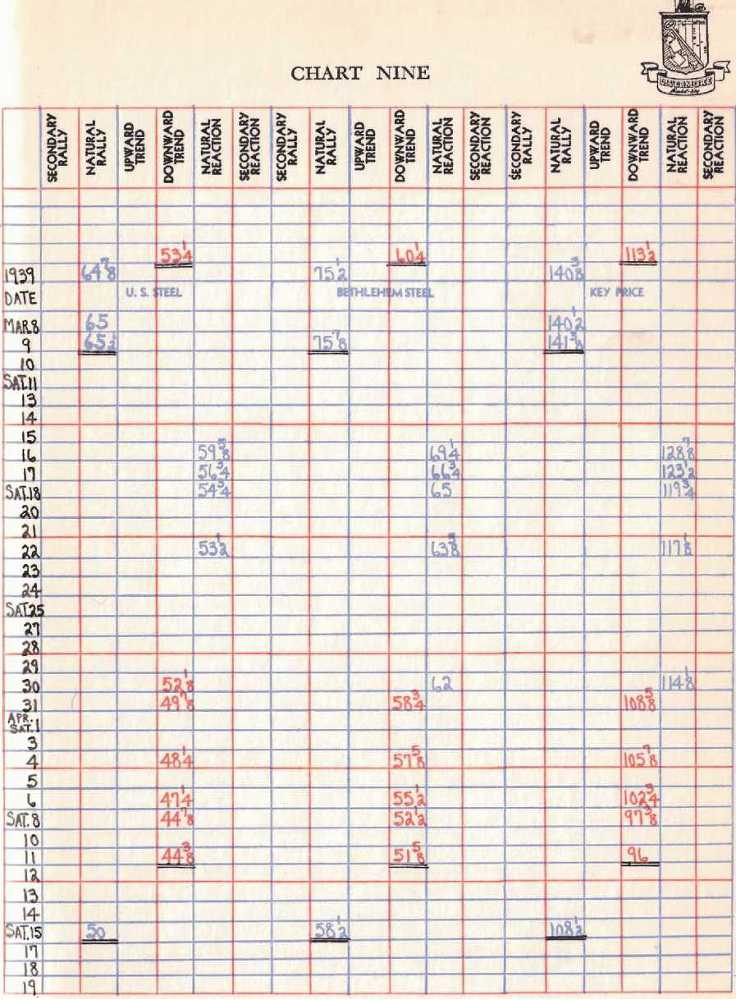 LIVERMORE
CHART NINE
SECONDARY RALLY NATURAL RALLY UPWARD TREND DOWNWARD TREND NATURAL REACTION SECONDARY REACTION SECONDARY RALLY NATURAL RALLY UPWARD TREND DOWNWARD TREND NATURAL REACTION SECONDARY REACTION SECONDARY RALLY NATURAL RALLY UPWARD TREND DOWNWARD TREND NATURAL REACTION SECONDARY REACTION
53¼ 60¼ 113½
1939 64⅞ 75½ 140⅜
DATE U. S. STEEL BETHLEHEM STEEL KEY PRICE
MAR.8 65 140½
9 65½ 75⅞ 141⅜
10
SAT.11
13
14
15
16 59⅝ 69¼ 128⅞
17 56¾ 66¾ 123½
SAT.18 54¾ 65 119¾
20
21
22 53½ 63⅝ 117⅛
23
24
SAT.25
27
28
29
30 52⅛ 62 114⅛
31 49⅞ 58¾ 108⅝
APR.
SAT.1
3
4 48¼ 57⅝ 105⅞
5
6 47¼ 55½ 102¾
SAT.8 44⅞ 52½ 97⅜
10
11 44⅜ 51⅝ 96
12
13
14
SAT.15 50 58½ 108½
17
18
19